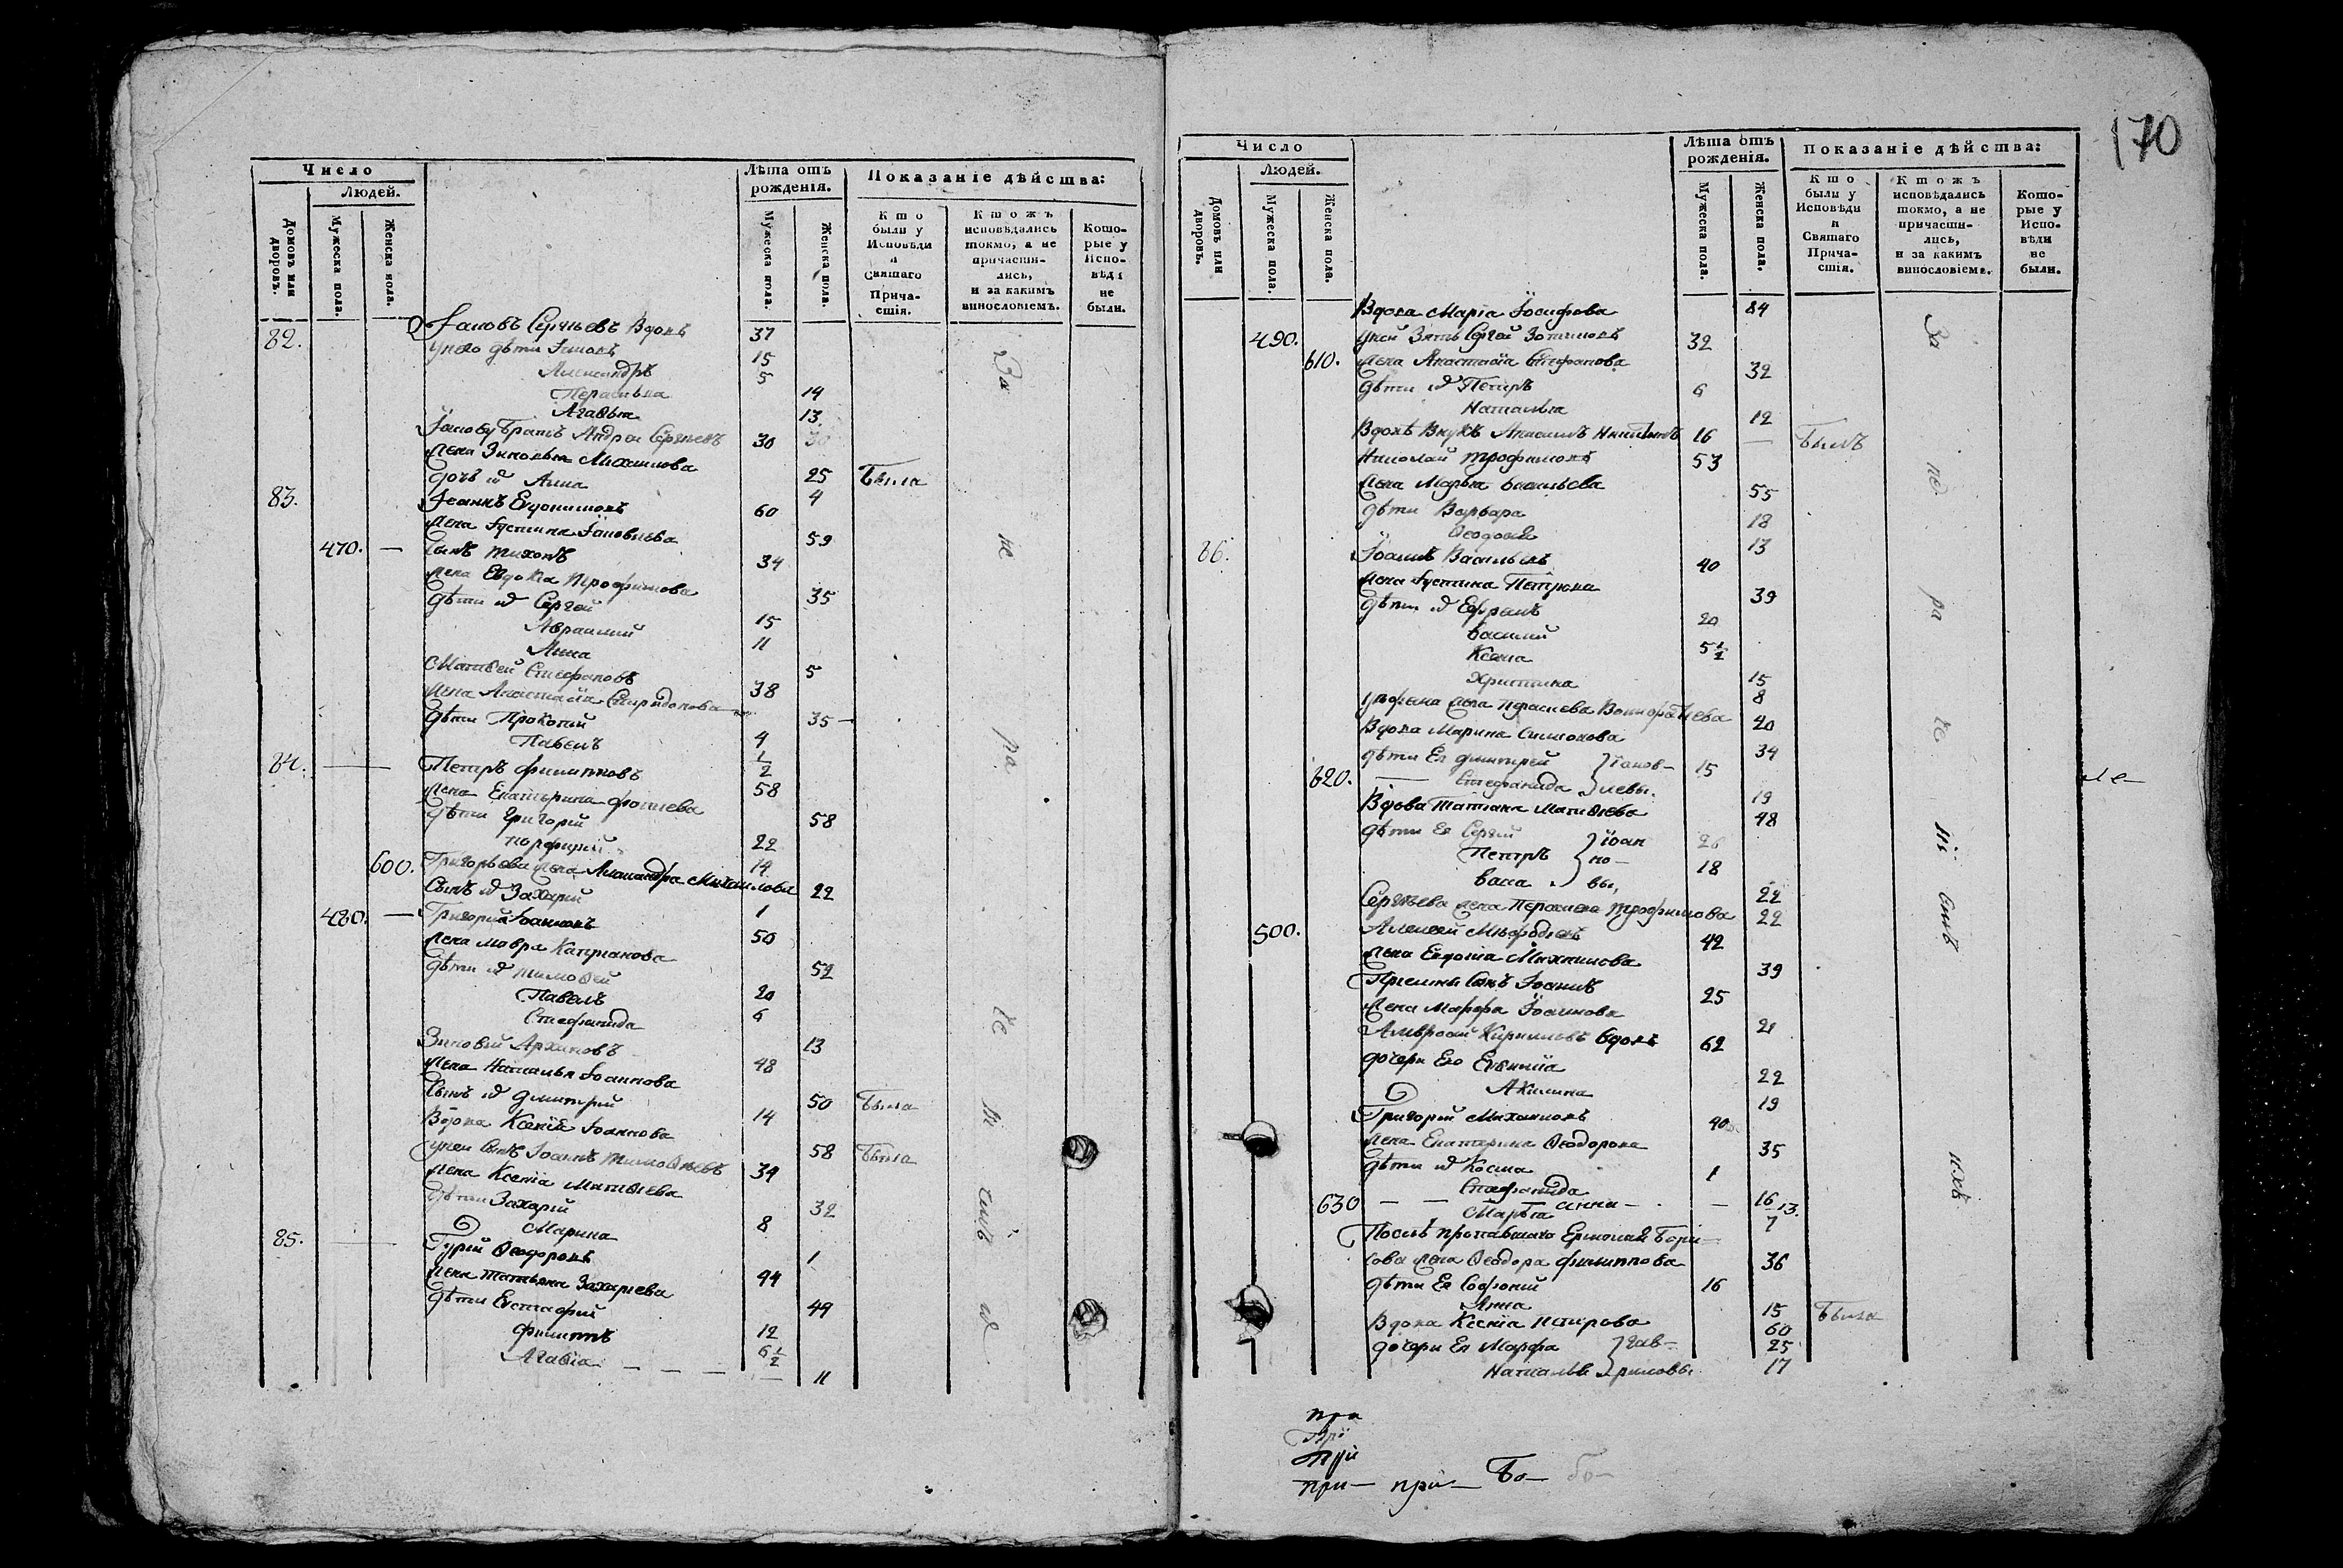 Число
Людей.
Домовъ или дворовъ.
Мужеска пола.
Женска пола.
Лѣта отъ рожденія.
Мужеска пола.
Женска пола.
Показаніе дѣйства:
Кто были у Исповѣди и Святаго Причастія.
Ктожъ исповѣдались токмо, а не причастились, и за какимъ винословіемъ.
Которые у Исповѣди не были.
82. Іаковъ Сергѣевъ Вдовъ 37
унего дѣти Симонъ 15
Александръ 5
Параскева 14
Агаѳья 13
Іакову братъ Андрей Сергѣевъ 30
Жена Зиновья Михаилова 25 Была
дочь их Анна 4
83. Іоаннъ Евдокимовъ 60
Жена Іустина Іаковлева 59
470. — Сынъ Тихонъ 34
Жена Евдокія Трофимова 35
дѣти их Сергей 15
Авраамій 11
Анна 5
Матвей Стефановъ 38
Жена Анастасія Спиридонова 35 —
дѣти Прокопій 4
Павелъ 1/2
84. Петръ Филипповъ 58
Жена Екатерина Фотиева 58
дѣти Григорій 22
Порфирій 14
600. Григорьева жена Александра Михаилова 22
Сынъ их Захарій 1
480. — Григорій Іоанновъ 50
Жена Мавра Каприанова 52
дѣти их Тимоѳей 20
Павелъ 6
Стефанида 13
Зиновій Архиповъ 48
Жена Наталья Іоаннова 50 Была
Сынъ их Дмитрій 14
Вдова Ксенія Іоаннова 58 Была
унеи сынъ Іоаннъ Тимоѳеевъ 34
Жена Ксенія Матѳиева 32
дѣти Захарій 8
Марина 1
85. Гурій Ѳеодоровъ 44
Жена Татьяна Захариева 49
дѣти Евстафій 12
Филиппъ 6 1/2
Агаѳіа 11
За не ра че ні емъ
170
Число
Людей.
Домовъ или дворовъ.
Мужеска пола.
Женска пола.
Лѣта отъ рожденія.
Мужеска пола.
Женска пола.
Показаніе дѣйства:
Кто были у Исповѣди и Святаго Причастія.
Ктожъ исповѣдались токмо, а не причастились, и за какимъ винословіемъ.
Которые у Исповѣди не были.
Вдова Марія Іосифова 84
490. унеи Зять Сергей Зотиковъ 32
610. Жена Анастасія Стефанова 32
дѣти их Петръ 6
Наталья 12
Вдовѣ Внукъ 16 — Былъ
Николай Трофимовъ 53
Жена Марѳа Васильева 55
дѣти Варвара 18
Ѳеодосія 13
86. Іоаннъ Васильевъ 40
Жена Іустина Петрова 39
дѣти их Ефремъ 20
Василий 5 1/2
Ксенія 15
Христина 8
Ефрема жена Параскева 20
Вдова Марина Симонова 34
дѣти Ея Димитрей Іаков- 15
620. — Стефанида левы. 19
Вдова Татiана Матѳиева 48
дѣти Ея Сергій Іоан 26
Петръ но- 18
Васса вы, 22
Сергѣева жена Параскева Трофимова 22
500. Алексей 42
Жена Евдокія Михаилова 39
Приемны сынъ Іоаннъ 25
Жена Марфа Іоаннова 21
Амвросій Кириловъ вдовъ 62
дочери Его Евѳимія 22
Акилина 19
Григорій Михаиловъ 40
Жена Екатерина Ѳеодорова 35
дѣти их Косма 1
Стефанида 16
630 — — Анна — 13.
Марѳа 7
Послѣ пропавшаго Ермолая Бори-
сова жена Ѳеодора Филиппова 36
дѣти Ея Софроній 16
Анна 15
Вдова Ксенія Петрова 60 Была
дочери Ея Марфа Гав- 25
Наталья риловы 17
За не ра че ні емъ
ле-
при
при
при
при— при— Бо— бо—